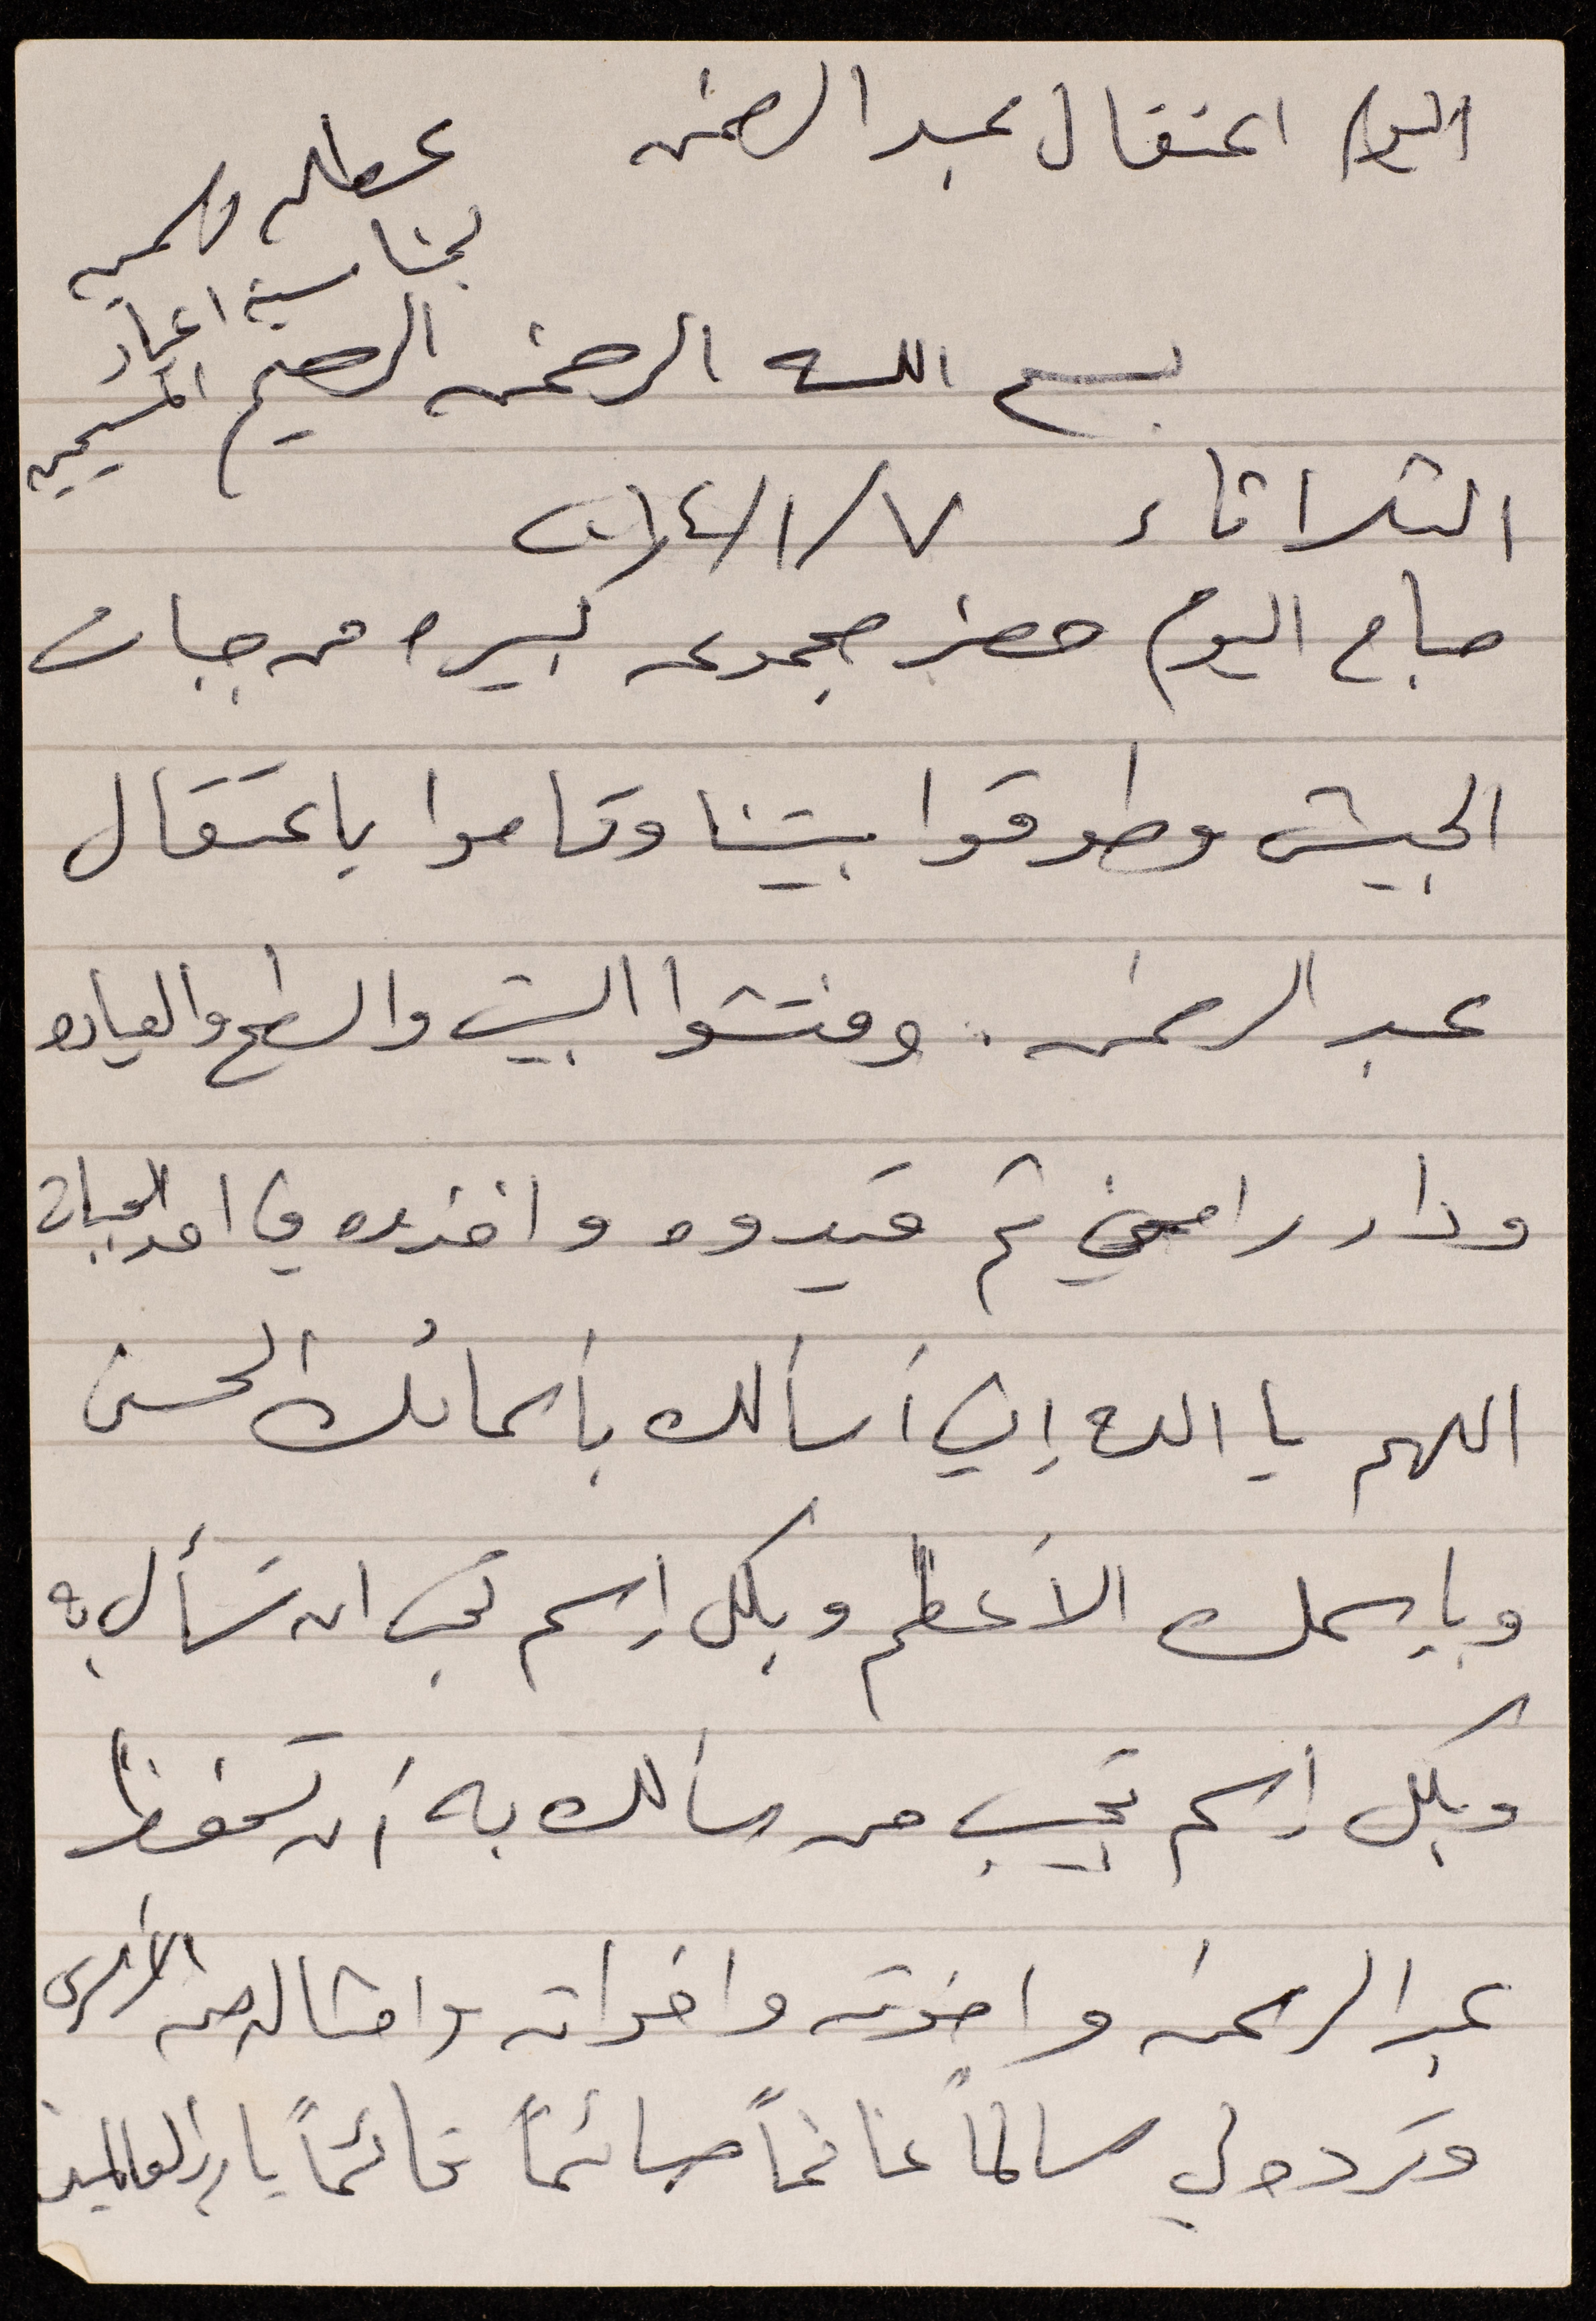 اليوم اعتقال عبد الرحمن
عطله رسميه
بمناسبة اعياد
المسيحيه
بسم الله الرحمن الرحيم
الثلاثاء ٢٠١٤/١/٧
صباح اليوم حضر مجموعه كبيره من جبات
الجيش وطوقوا بيتنا وقاموا باعتقال
عبد الرحمن . وفتشوا البيت والسطح والعياده
ودار رامي ثم قيدوه واخذوه في احد الجبات
اللهم يا الله إني أسألك بأسمائك الحسنى
وبإسمك الأعظم وبكل إسم تحب ان تسأل به
وبكل إسم تجيب من سألك به أن تحفظ
عبد الرحمن واخوته واخواته وامثاله من الأسرى
وتردولي سالماً غانماً صائماً قائماً يا رب العالمين